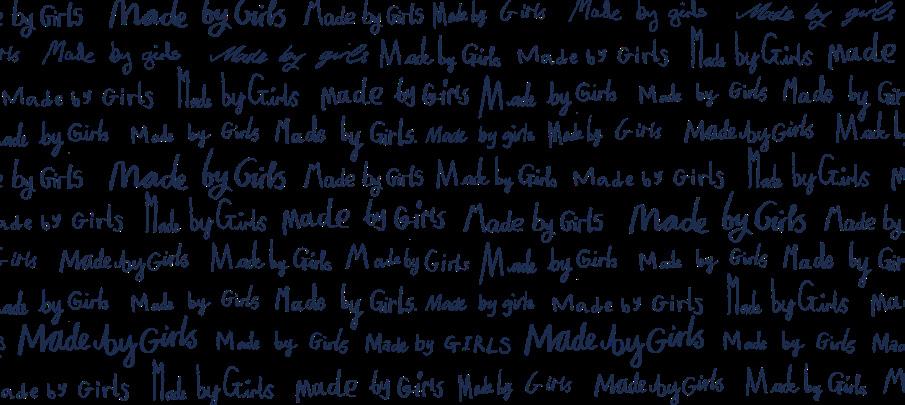 by Girls Made by Girls Made by Girls Made by Girls Made by girls Made by girls
Made by girls Made by girls Made by Girls Made by Girls Made by Girls Made
Made by Girls Made by Girls Made by Girls Made by Girls Made by Girls Made by
Made by Girls Made by Girls Made by Girls. Made by girls Made by Girls Made by Girls Made by
by Girls Made by Girls Made by Girls Made by Girls Made by Girls Made by Girls
by Girls Made by Girls Made by Girls Made by Girls Made by Girls Made by
Girls Made by Girls Made by Girls Made by Girls Made by Girls Made by Girls Made by
by Girls Made by Girls Made by Girls. Made by girls Made by Girls Made by Girls
Made by Girls Made by Girls Made by GIRLS Made by Girls Made by Girls
by Girls Made by Girls Made by Girls Made by Girls Made by Girls Made by Girls